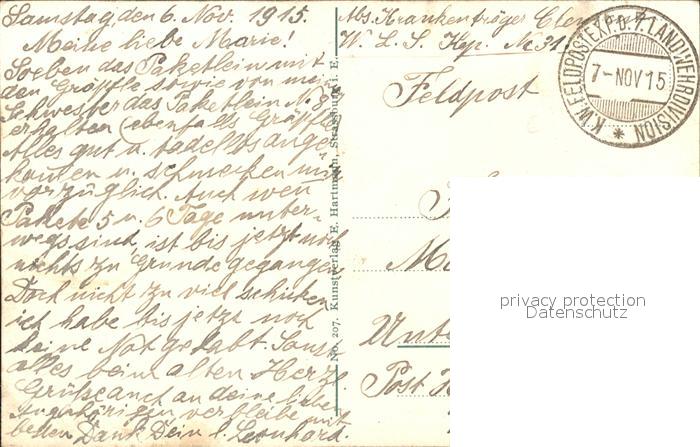 Samstag, den 6. Nov. 1915.
Meine liebe Marie!
Soeben das Paketlein mit
den Gröpfle sowie von mei
Schwester das Paketlein N. 8
erhalten (ebenfalls Gröpfle
Alles gut u. tadellos ange
kommen u. schmecken mir
vorzüglich. Auch wen
Pakete 5 u. 6 Tage unter-
wegs sind, ist bis jetzt noch
nichts zu Grunde gegangen
Doch nicht zu viel schicken
ich habe bis jetzt noch
keine Not gehabt. Sonst
alles beim alten Herz
Grüße auch an deine liebe
Angehörigen verbleibe mit
besten Dank Dein l. Leonhard.
No. 207. Kunstverlag E. Hartmann, Strassburg i. E.
Abs. Krankenträger
W. L. S. Kop. Nr. 31
Feldpost
K.W. FELDPOSTEXP. D. 7. LANDWEHRDIVISION
7-NOV 15
Unt
Post
privacy protection
Datenschutz